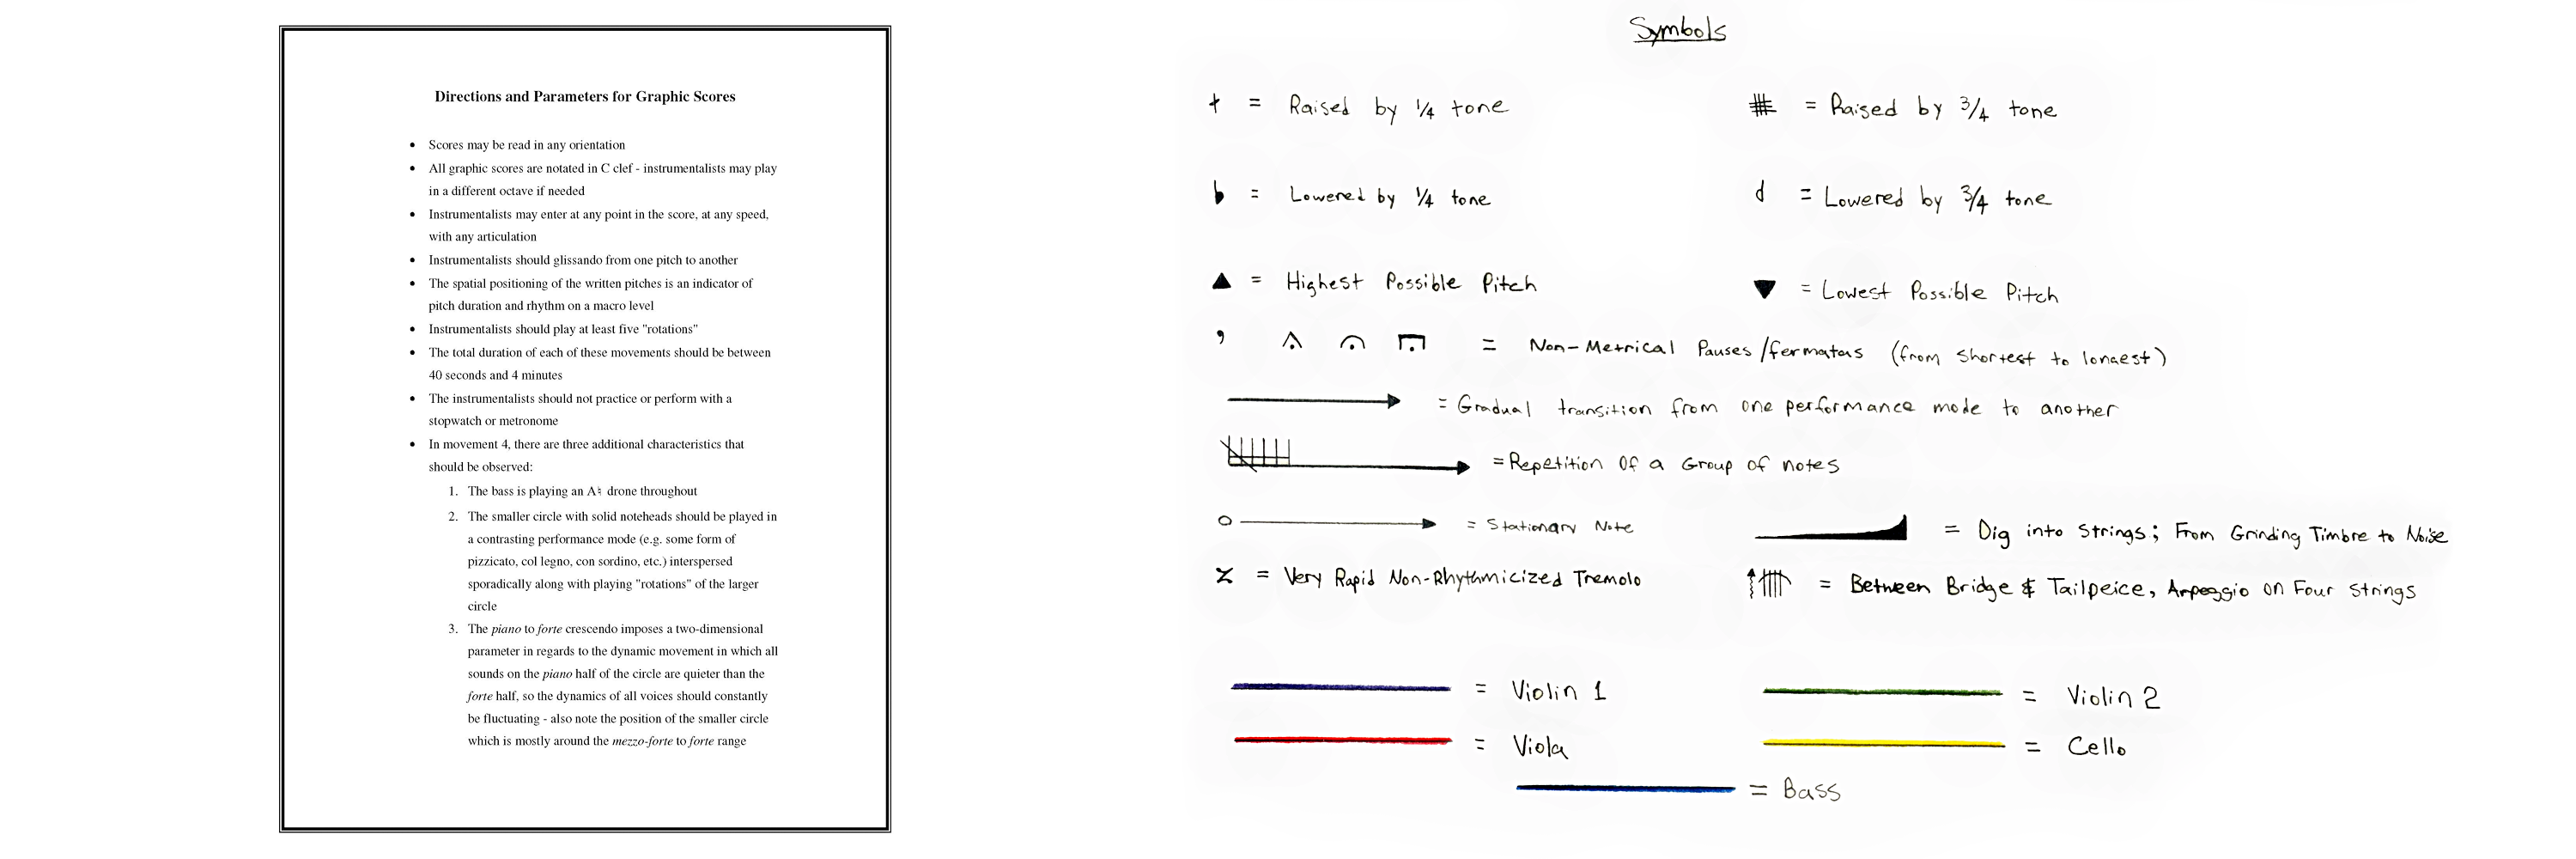 Directions and Parameters for Graphic Scores
• Scores may be read in any orientation
• All graphic scores are notated in C clef - instrumentalists may play
in a different octave if needed
• Instrumentalists may enter at any point in the score, at any speed,
with any articulation
• Instrumentalists should glissando from one pitch to another
• The spatial positioning of the written pitches is an indicator of
pitch duration and rhythm on a macro level
• Instrumentalists should play at least five "rotations"
• The total duration of each of these movements should be between
40 seconds and 4 minutes
• The instrumentalists should not practice or perform with a
stopwatch or metronome
• In movement 4, there are three additional characteristics that
should be observed:
1. The bass is playing an A♮ drone throughout
2. The smaller circle with solid noteheads should be played in
a contrasting performance mode (e.g. some form of
pizzicato, col legno, con sordino, etc.) interspersed
sporadically along with playing "rotations" of the larger
circle
3. The piano to forte crescendo imposes a two-dimensional
parameter in regards to the dynamic movement in which all
sounds on the piano half of the circle are quieter than the
forte half, so the dynamics of all voices should constantly
be fluctuating - also note the position of the smaller circle
which is mostly around the mezzo-forte to forte range
Symbols
= Raised by 1/4 tone
= Raised by 3/4 tone
= Lowered by 1/4 tone
= Lowered by 3/4 tone
▲ = Highest Possible Pitch
▼ = Lowest Possible Pitch
= Non-Metrical Pauses/fermatas (from shortest to longest)
= Gradual transition from one performance mode to another
= Repetition of a Group of notes
= Stationary Note
= Dig into strings; From Grinding Timbre to Noise
z = Very Rapid Non-Rhythmicized Tremolo
= Between Bridge & Tailpeice, Arpeggio on Four Strings
= Violin 1
= Violin 2
= Viola
= Cello
= Bass